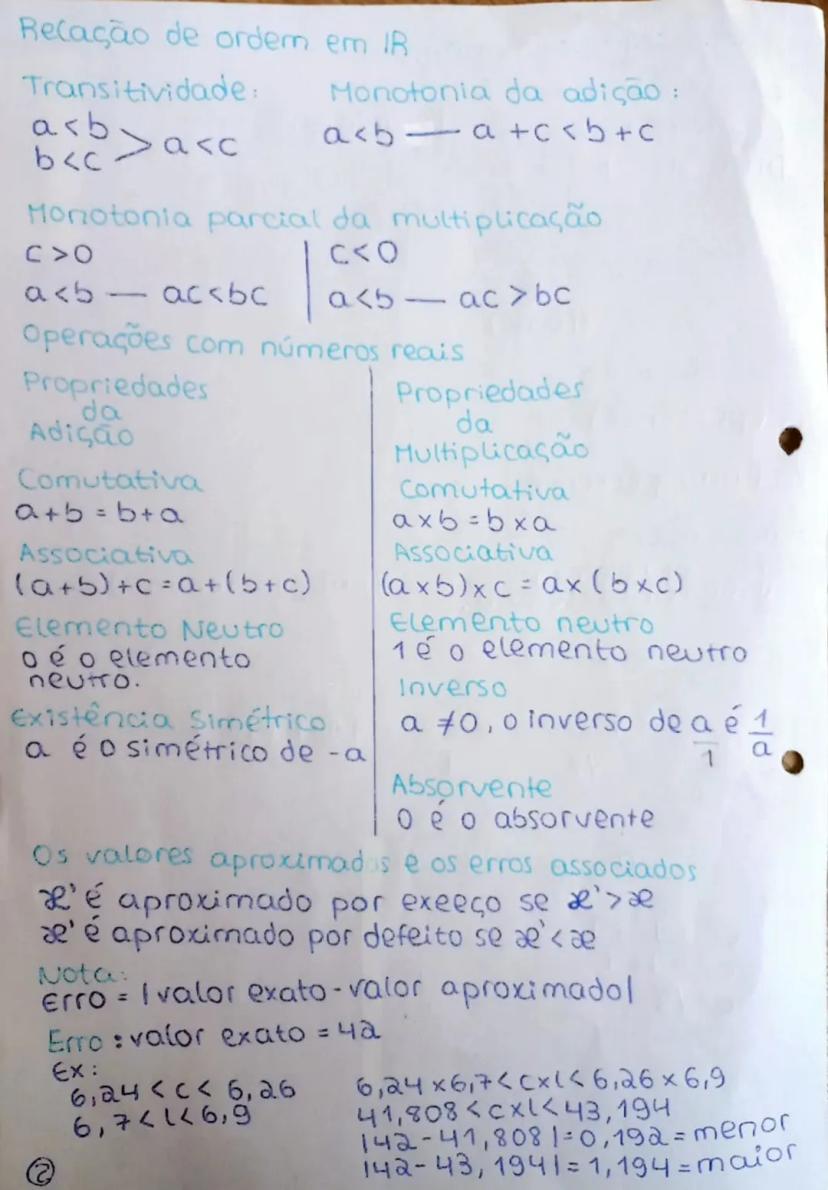 Relação de ordem em IR
Transitividade:
a<b
b<c > a<c
Monotonia da adição:
a<b — a+c<b+c
Monotonia parcial da multiplicação
c>0
a<b — ac<bc
c<0
a<b — ac>bc
Operações com números reais
Propriedades
da
Adição
Comutativa
a+b=b+a
Associativa
(a+b)+c=a+(b+c)
Elemento Neutro
0 é o elemento
neutro.
Existência Simétrico
a é o simétrico de -a
Propriedades
da
Multiplicação
Comutativa
a×b=b×a
Associativa
(a×b)×c=a×(b×c)
Elemento neutro
1 é o elemento neutro
Inverso
a ≠0, o inverso de a/1 é 1/a
Absorvente
0 é o absorvente
Os valores aproximados e os erros associados
x' é aproximado por exeeço se x'>x
x' é aproximado por defeito se x'<x
Nota:
Erro = |valor exato-valor aproximado|
Erro: valor exato = 42
Ex:
6,24<c<6,26
6,7<l<6,9
6,24×6,7<c×l<6,26×6,9
41,808<c×l<43,194
|42-41,808|=0,192=menor
|42-43,194|=1,194=maior
2